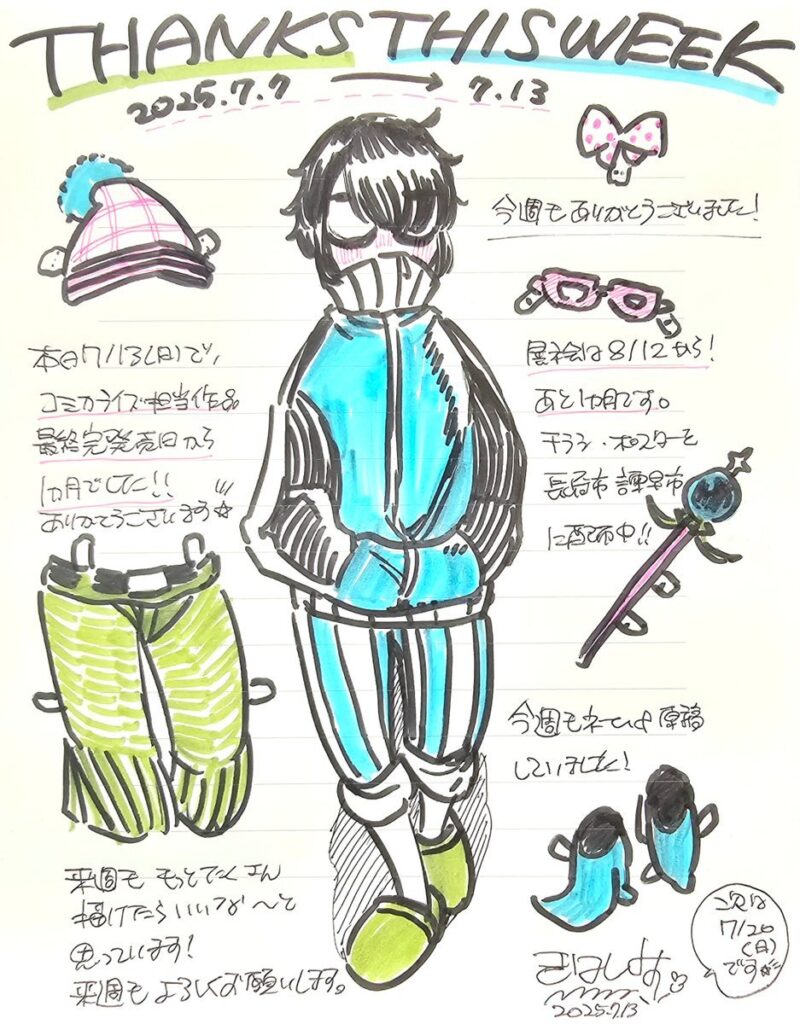 THANKS THIS WEEK
2025.7.7 → 7.13
今週もありがとうございました!
本日7/13(日)で、
コミカライズ担当作品
最終完発売日から
1カ月でした!!
ありがとうございます☆
展示会は8/12から!
あと1カ月です。
チラシ・ポスターを
長崎市 諫早市
に配布中!!
今週も 原稿
していました!
来週も もっとたくさん
描けたらいいな〜と
思っています!
来週も よろしくお願いします。
2025.7.13
次は
7/20
(日)
です☆